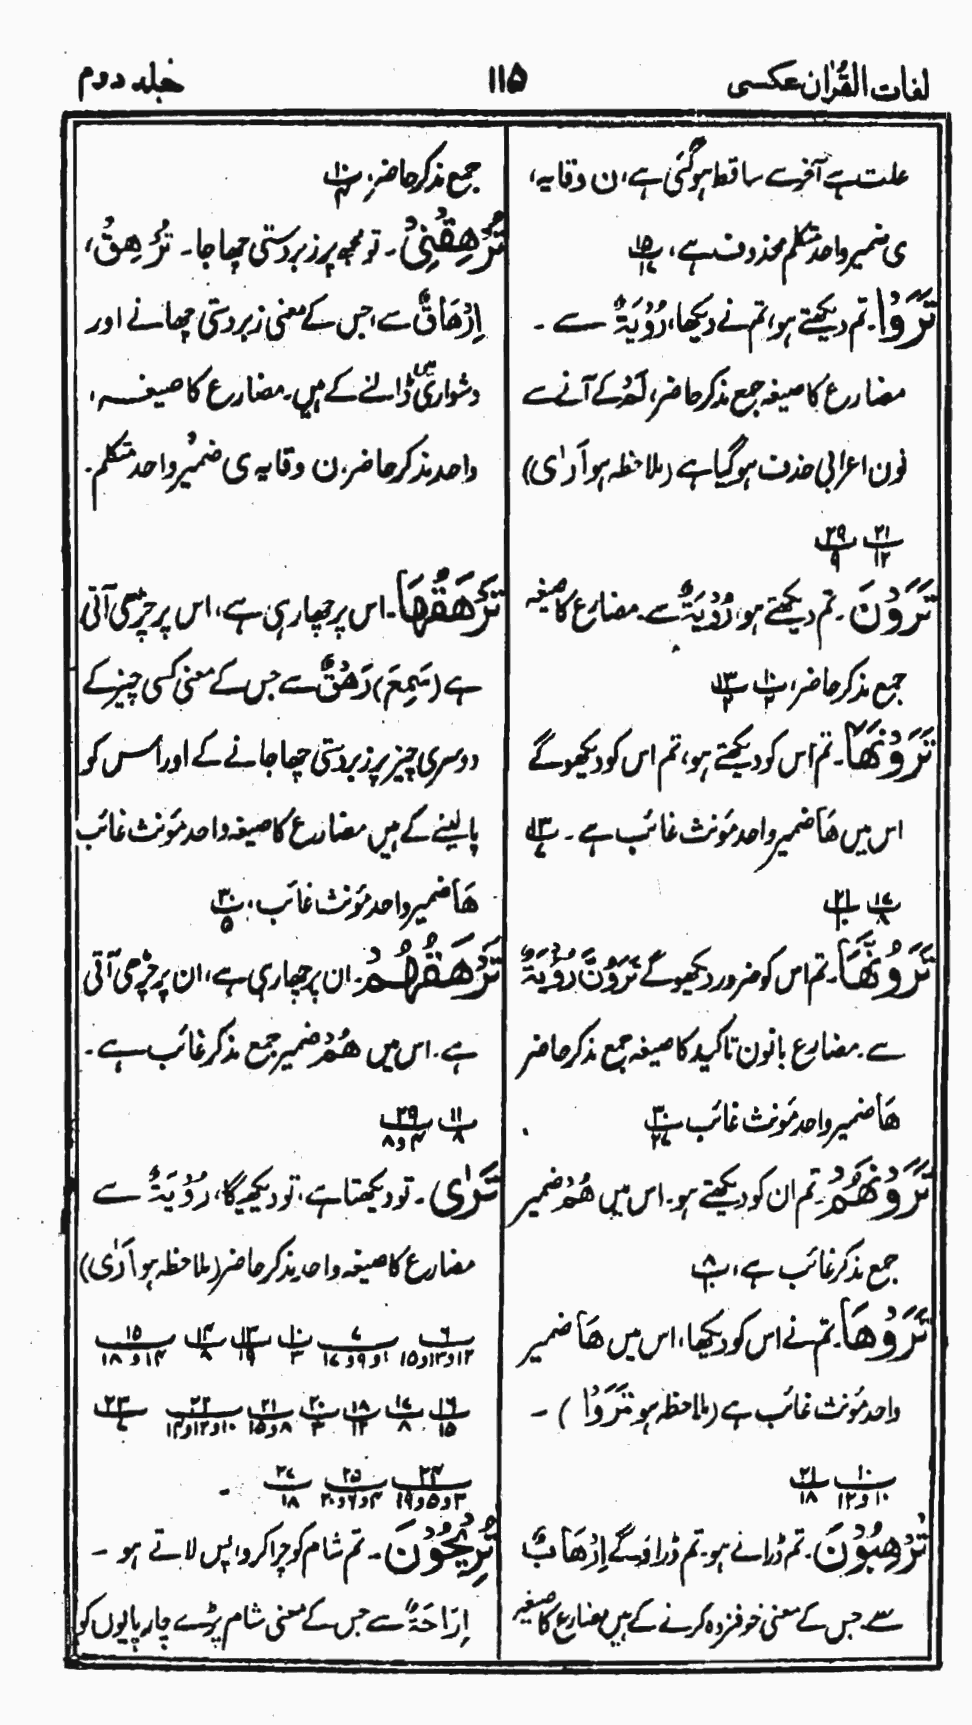 لغات القرآن عکسی
۱۱۵
جلد دوم
علت ہے آخر سے ساقط ہو گئی ہے، ن وقایہ،
ی ضمیر واحد متکلم محذوف ہے، ۱۵/۱۷
تَرَوْا۔ تم دیکھتے ہو، تم نے دیکھا، رُؤْیَۃٌ سے ۔
مضارع کا صیغہ جمع مذکر حاضر، لَمْ کے آنے سے
نون اعرابی حذف ہو گیا ہے (ملاحظہ ہو اَرٰی)
۲۱/۱۲ ۲۹/۹
تَرَوْنَ ۔ تم دیکھتے ہو، رُؤْیَۃٌ سے۔ مضارع کا صیغہ
جمع مذکر حاضر، ۱۰/۲ ۱۳/۲
تَرَوْنَھَا۔ تم اس کو دیکھتے ہو، تم اس کو دیکھو گے
اس میں ھَا ضمیر واحد مؤنث غائب ہے ۔ ۱۳/۷
۱۷/۸ ۲۱/۱۰
تَرَوُنَّھَا۔ تم اس کو ضرور دیکھو گے تَرَوُنَّ رُؤْیَۃٌ
سے ۔ مضارع بانون تاکید کا صیغہ جمع مذکر حاضر
ھَا ضمیر واحد مؤنث غائب ۳۰/۲۷
تَرَوْنَھُمْ۔ تم ان کو دیکھتے ہو۔ اس میں ھُمْ ضمیر
جمع مذکر غائب ہے، ۸/۱۰
تَرَوْھَا۔ تم نے اس کو دیکھا، اس میں ھَا ضمیر
واحد مؤنث غائب ہے (ملاحظہ ہو تَرَوْا ) ۔
۱۰/۱۰و۱۲ ۲۱/۱۸
تُرْھِبُوْنَ۔ تم ڈراتے ہو۔ تم ڈراؤ گے اِرْھَابٌ
سے۔ جس کے معنی خوفزدہ کرنے کے ہیں مضارع کا صیغہ
جمع مذکر حاضر، ۱۰/۴
تُرْھِقْنِیْ ۔ تو مجھ پر زبردستی چھا جا ۔ تُرْھِقْ،
اِرْھَاقٌ سے، جس کے معنی زبردستی چھانے اور
دشواری میں ڈالنے کے ہیں۔ مضارع کا صیغہ،
واحد مذکر حاضر، ن وقایہ ی ضمیر واحد متکلم۔
تَرْھَقُھَا۔ اس پر چھا رہی ہے، اس پر چڑھی آتی
ہے (سَمِعَ) رَھْقٌ سے جس کے معنی کسی چیز کے
دوسری چیز پر زبردستی چھا جانے کے اور اس کو
پا لینے کے ہیں مضارع کا صیغہ واحد مؤنث غائب
ھَا ضمیر واحد مؤنث غائب، ۳۰/۵
تَرْھَقُھُمْ۔ ان پر چھا رہی ہے، ان پر چڑھی آتی
ہے ۔ اس میں ھُمْ ضمیر جمع مذکر غائب ہے ۔
۱۱/۸ ۲۹/۴و۸
تَرٰی ۔ تو دیکھتا ہے، تو دیکھیگا، رُؤْیَۃٌ سے
مضارع کا صیغہ واحد مذکر حاضر (ملاحظہ ہو اَرٰی)
۶/۱۲و۱۳و۱۵ ۷/۱و۹و۱۷ ۱۰/۳ ۱۳/۱۹ ۱۴/۸ ۱۵/۱۴و۱۸
۱۶/۱۵ ۱۷/۸ ۱۸/۱۲ ۲۰/۳ ۲۱/۸و۱۵ ۲۲/۱۰و۱۲و۱۴ ۲۳/۷
۲۴/۳و۵و۱۹ ۲۵/۴و۶و۲۰ ۲۷/۱۸ ۔
تُرِیْحُوْنَ ۔ تم شام کو چرا کر واپس لاتے ہو ۔
اِرَاحَۃٌ سے جس کے معنی شام پڑے چارپایوں کو